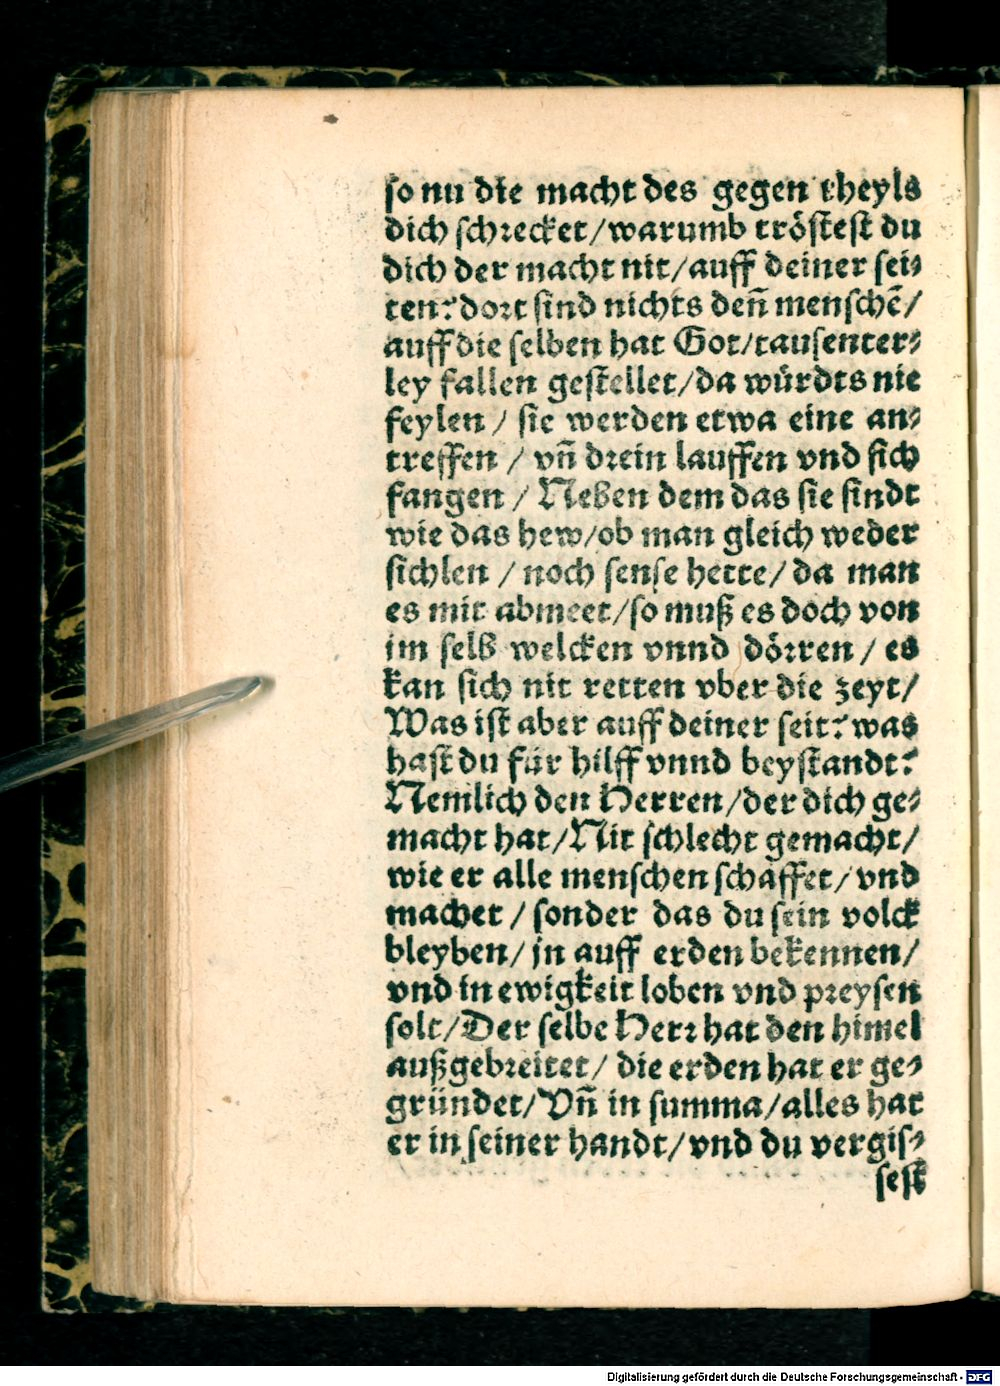 so nu die macht des gegen theyls
dich schrecket/warumb tröstest du
dich der macht nit/auff deiner sei⸗
ten? dort sind nichts deñ menschẽ/
auff die selben hat Got/tausenter⸗
ley fallen gestellet/da würdts nie
feylen / sie werden etwa eine an⸗
treffen / vñ drein lauffen vnd sich
fangen / Neben dem das sie sindt
wie das hew/ob man gleich weder
sichlen / noch sense hette/ da man
es mit abmeet/so muß es doch von
im selb welcken vnnd dörren / es
kan sich nit retten vber die zeyt/
Was ist aber auff deiner seit? was
hast du für hilff vnnd beystandt?
Nemlich den Herren/der dich ge⸗
macht hat/Nit schlecht gemacht/
wie er alle menschen schaffet/vnd
machet / sonder das du sein volck
bleyben/ jn auff erden bekennen/
vnd in ewigkeit loben vnd preysen
solt/Der selbe Herr hat den himel
außgebreitet/ die erden hat er ge⸗
gründet/Vñ in summa/alles hat
er in seiner handt/vnd du vergis⸗
sest
Digitalisierung gefördert durch die Deutsche Forschungsgemeinschaft - DFG